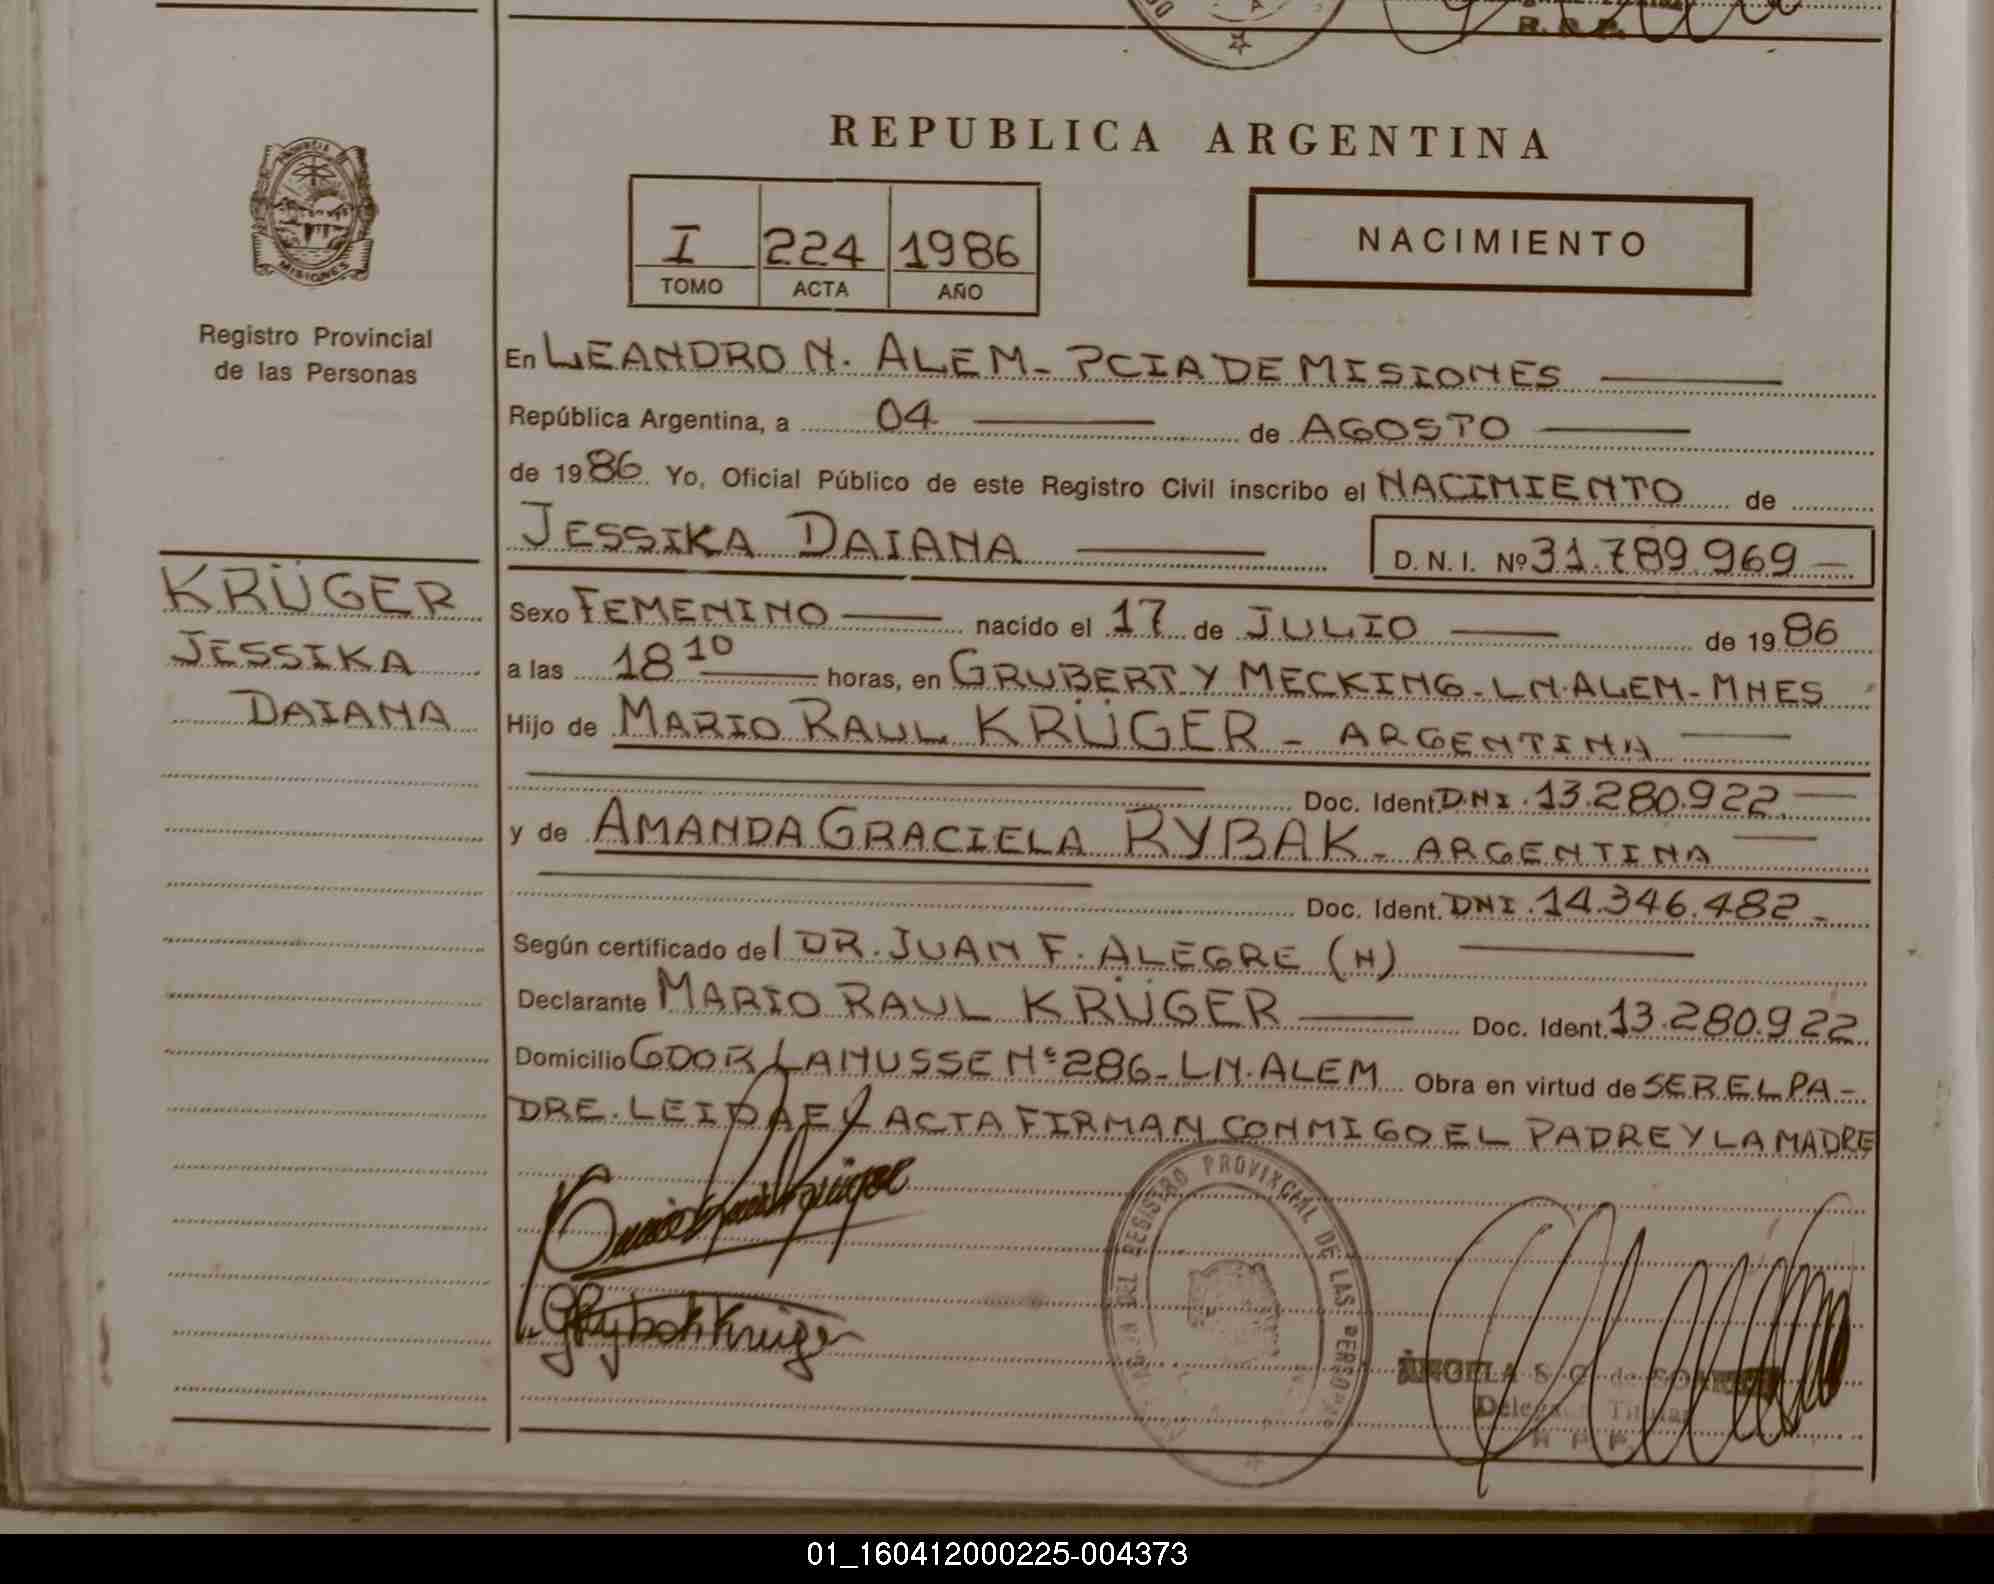 R. P. P.
REPUBLICA ARGENTINA
PROVINCIA DE
MISIONES
Registro Provincial
de las Personas
I 224 1986
TOMO ACTA AÑO
NACIMIENTO
En LEANDRO N. ALEM - PCIA DE MISIONES
República Argentina, a 04 de AGOSTO
de 1986. Yo, Oficial Público de este Registro Civil inscribo el NACIMIENTO de
JESSIKA DAIANA D. N. I. Nº 31.789.969
KRÜGER
JESSIKA
DAIANA
Sexo FEMENINO nacido el 17 de JULIO de 1986
a las 18 10 horas, en GRUBERT Y MECKING - L N. ALEM - MNES
Hijo de MARIO RAUL KRÜGER - ARGENTINA
Doc. Ident. DNI. 13.280.922
y de AMANDA GRACIELA RYBAK - ARGENTINA
Doc. Ident. DNI. 14.346.482 -
Según certificado del DR. JUAN F. ALEGRE (H)
Declarante MARIO RAUL KRÜGER Doc. Ident. 13.280.922
Domicilio GDOR LANUSSE Nº 286 - L N. ALEM Obra en virtud de SER EL PA-
DRE. LEIDA EL ACTA FIRMAN CONMIGO EL PADRE Y LA MADRE
DEL REGISTRO PROVINCIAL DE LAS PERSONAS
G Rybak Kruger
ANGELA S. C. de
Delegada Titular
R. P. P.
01_160412000225-004373